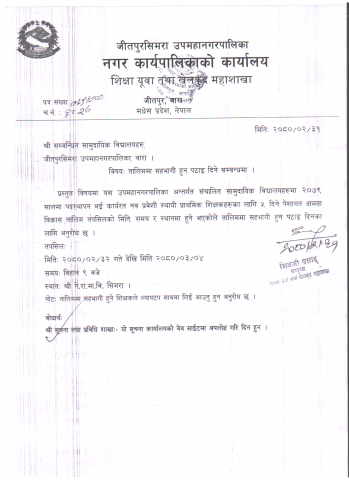 जीतपुरसिमरा उपमहानगरपालिका
नगर कार्यपालिकाको कार्यालय
शिक्षा युवा तथा खेलकुद महाशाखा
जीतपुर, बारा
मधेस प्रदेश, नेपाल
पत्र संख्या
च.नं.
मिति: २०८०/०२/३१
श्री सम्बन्धित सामुदायिक विद्यालयहरु,
जीतपुरसिमरा उपमहानगरपालिका, बारा ।
विषय: तालिममा सहभागी हुन पठाइ दिने सम्बन्धमा ।
प्रस्तुत विषयमा यस उपमहानगरपालिका अन्तर्गत संचालित सामुदायिक विद्यालयहरूमा २०७९
सालमा पदस्थापन भई कार्यरत नव प्रवेशी स्थायी प्राथमिक शिक्षकहरुका लागि ५ दिने पेशागत क्षमता
विकास तालिम तपसिलको मिति, समय र स्थानमा हुने भएकोले तालिममा सहभागी हुन पठाइ दिनका
लागि अनुरोध छ ।
तपसिल:
मिति: २०८०/०२/३२ गते देखि मिति २०८०/०३/०४
समय: बिहान ९ बजे
स्थान: श्री ने.रा.मा.वि. सिमरा ।
नोट: तालिममा सहभागी हुने शिक्षकले ल्यापटप साथमा लिई आउनु हुन अनुरोध छ ।
बोधार्थ:
श्री सूचना तथा प्रविधि शाखा:- यो सूचना कार्यालयको वेव साईटमा अपलोड गरि दिन हुन ।
शिवजी प्रसाद
प्रमुख